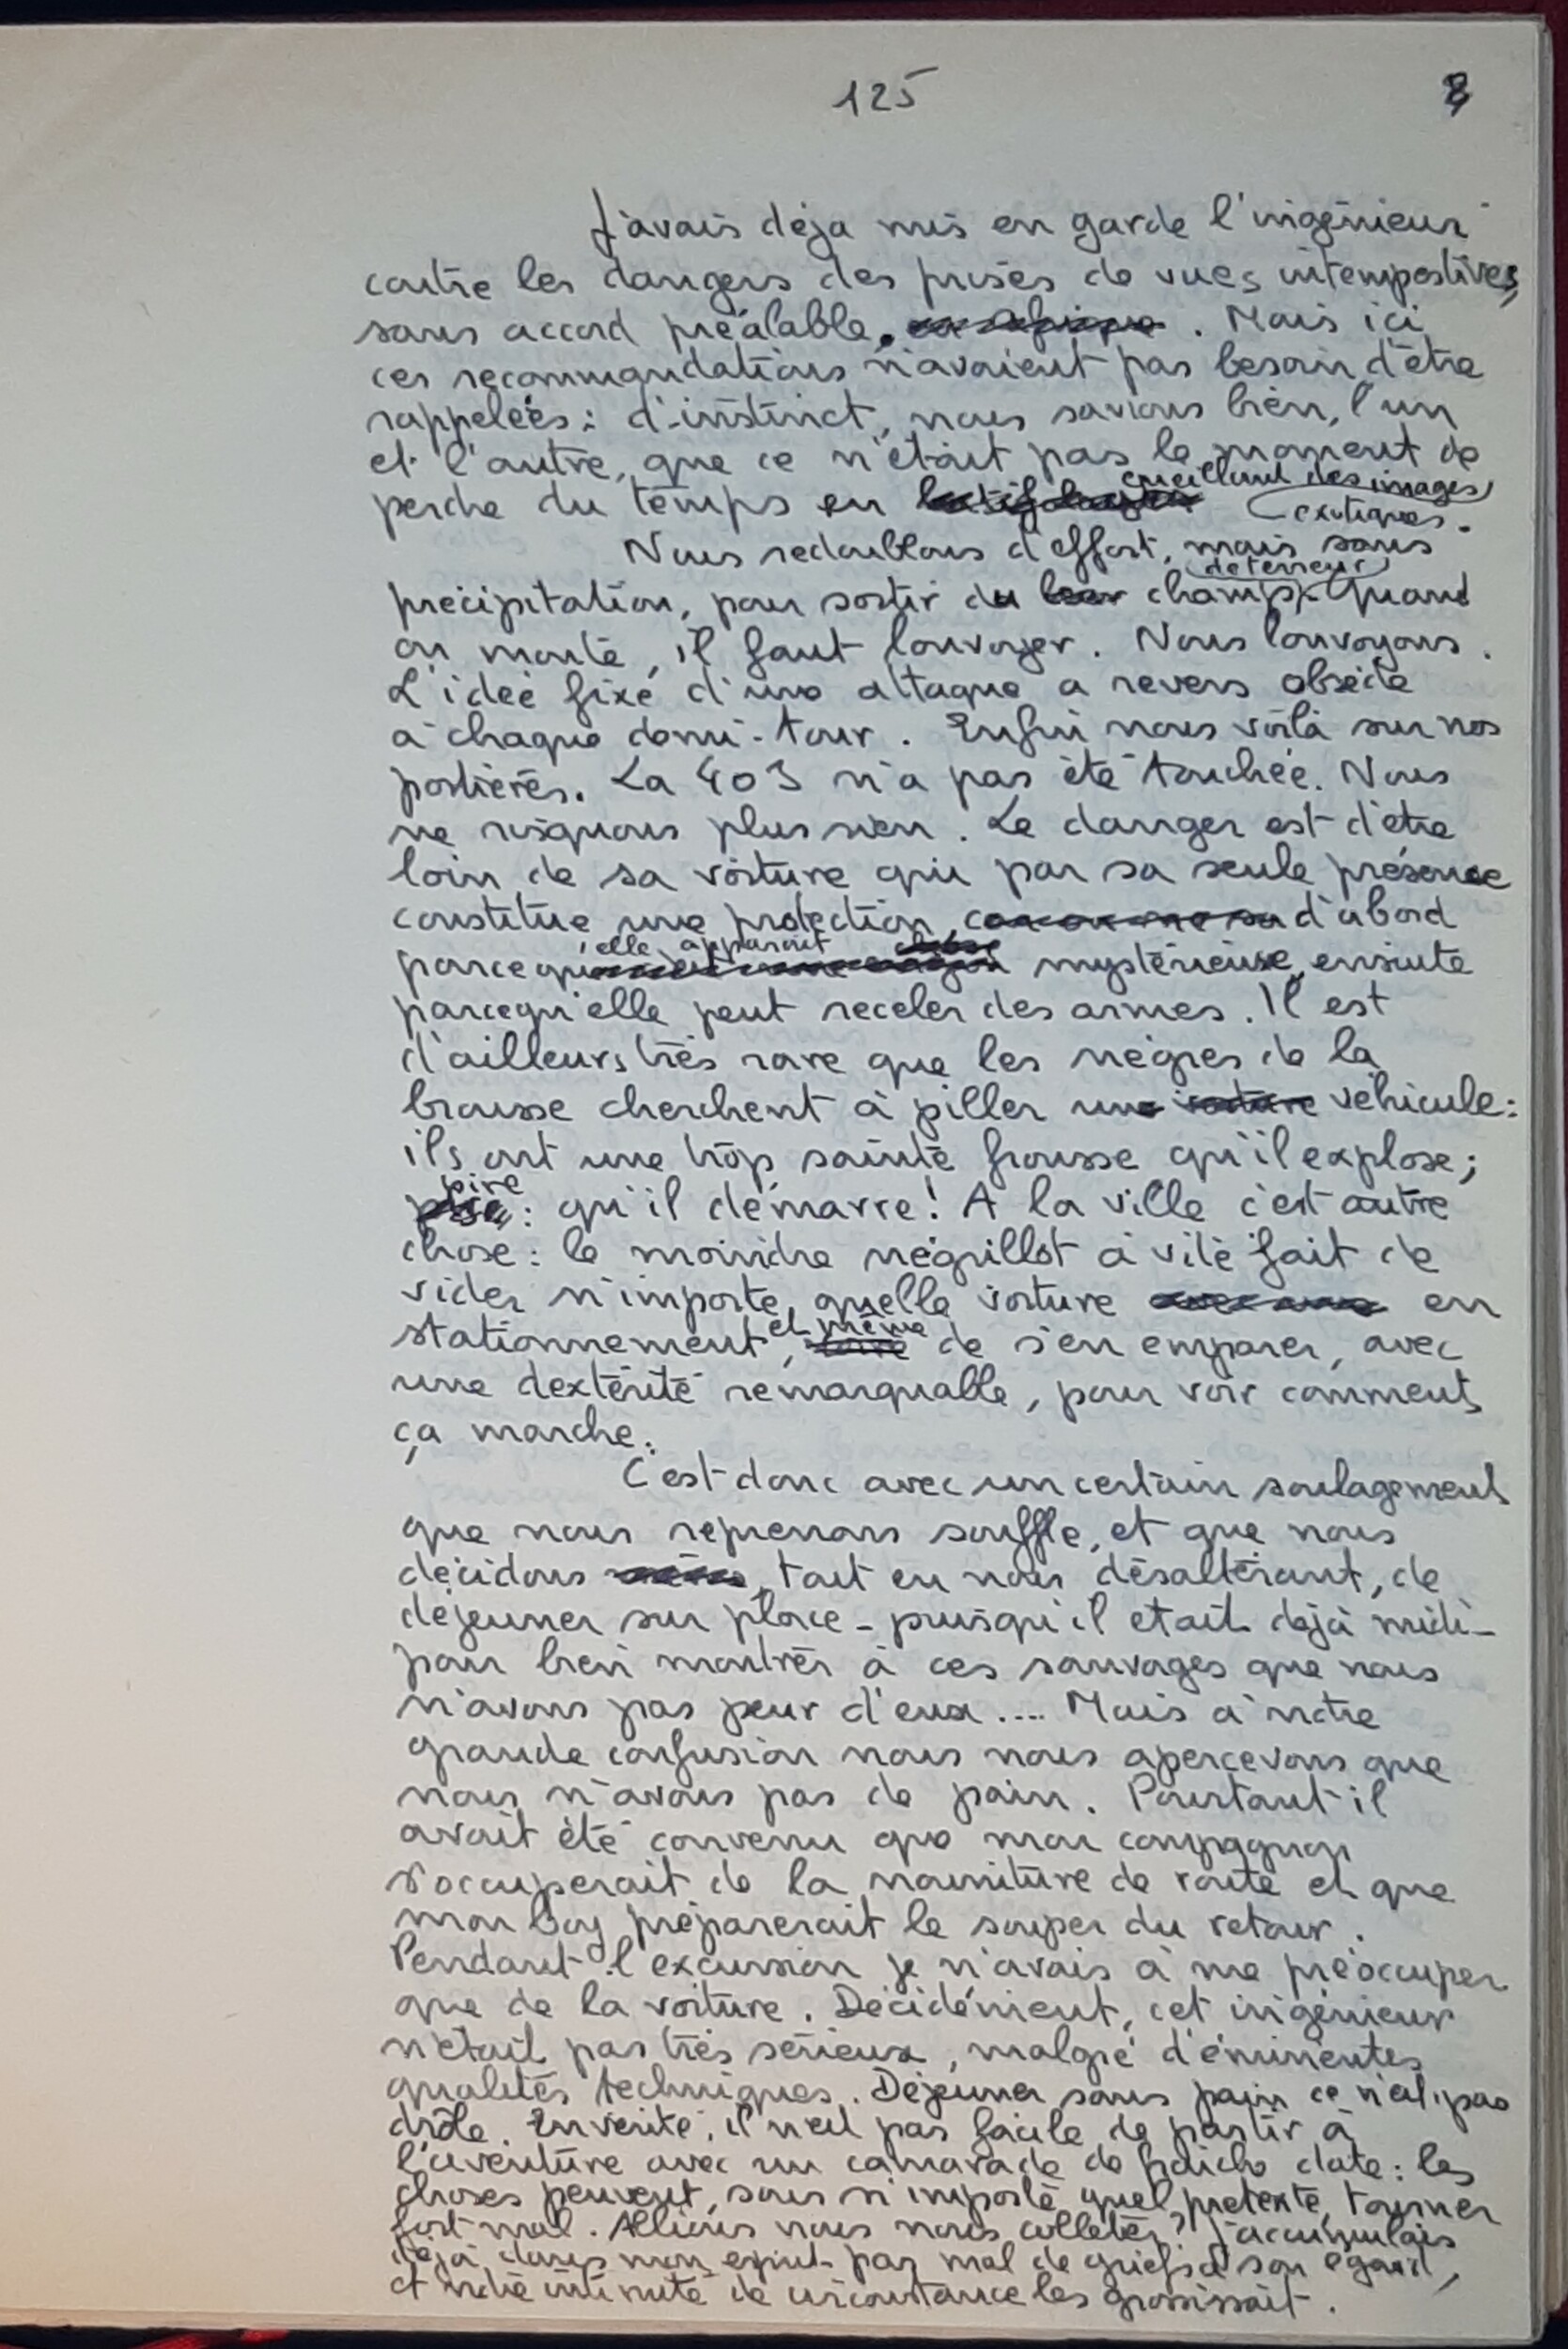 125
8
J'avais déjà mis en garde l'ingénieur
contre les dangers des prises de vues intempestives,
sans accord préalable. Mais ici
ces recommandations n'avaient pas besoin d'être
rappelées : d'instinct, nous savions bien, l'un
et l'autre, que ce n'était pas le moment de
perdre du temps en cueillant des images
exotiques.
Nous redoublons d'effort, mais sans
précipitation, pour sortir du champ de terreur. Quand
on monte, il faut louvoyer. Nous louvoyons.
L'idée fixe d'une attaque à revers obsède
à chaque demi-tour. Enfin nous voilà sur nos
portières. La 403 n'a pas été touchée. Nous
ne risquons plus rien. Le danger est d'être
loin de sa voiture qui par sa seule présence
constitue une protection, d'abord
parcequ'elle apparait mystérieuse, ensuite
parcequ'elle peut receler des armes. Il est
d'ailleurs très rare que les nègres de la
brousse cherchent à piller un véhicule :
ils ont une trop sainte frousse qu'il explose ;
pire : qu'il démarre ! A la ville c'est autre
chose : le moindre négrillot a vite fait de
vider n'importe quelle voiture en
stationnement, et même de s'en emparer, avec
une dextérité remarquable, pour voir comment
ça marche.
C'est donc avec un certain soulagement
que nous reprenons souffle, et que nous
décidons, tout en nous désaltérant, de
déjeuner sur place - puisqu'il était déjà midi -
pour bien montrer à ces sauvages que nous
n'avons pas peur d'eux .... Mais à notre
grande confusion nous nous apercevons que
nous n'avons pas de pain. Pourtant il
avait été convenu que mon compagnon
s'occuperait de la nourriture de route et que
mon boy préparerait le souper du retour.
Pendant l'excursion je n'avais à me préoccuper
que de la voiture. Décidément, cet ingénieur
n'était pas très sérieux, malgré d'éminentes
qualités techniques. Déjeuner sans pain ce n'est pas
drôle. En vérité, il n'est pas facile de partir à
l'aventure avec un camarade de fraîche date : les
choses peuvent, sous n'importe quel prétexte, tourner
fort mal. Allions nous nous colleter ? J'accumulais
déjà dans mon esprit pas mal de griefs à son égard,
et notre intimité de circonstance les grossissait.